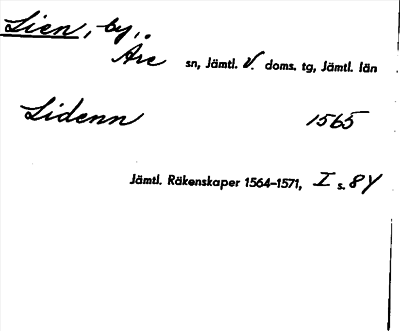 Lien, by,
Are sn, Jämtl. V. doms. tg, Jämtl. län
Lidenn 1565
Jämtl. Räkenskaper 1564–1571, I s. 84